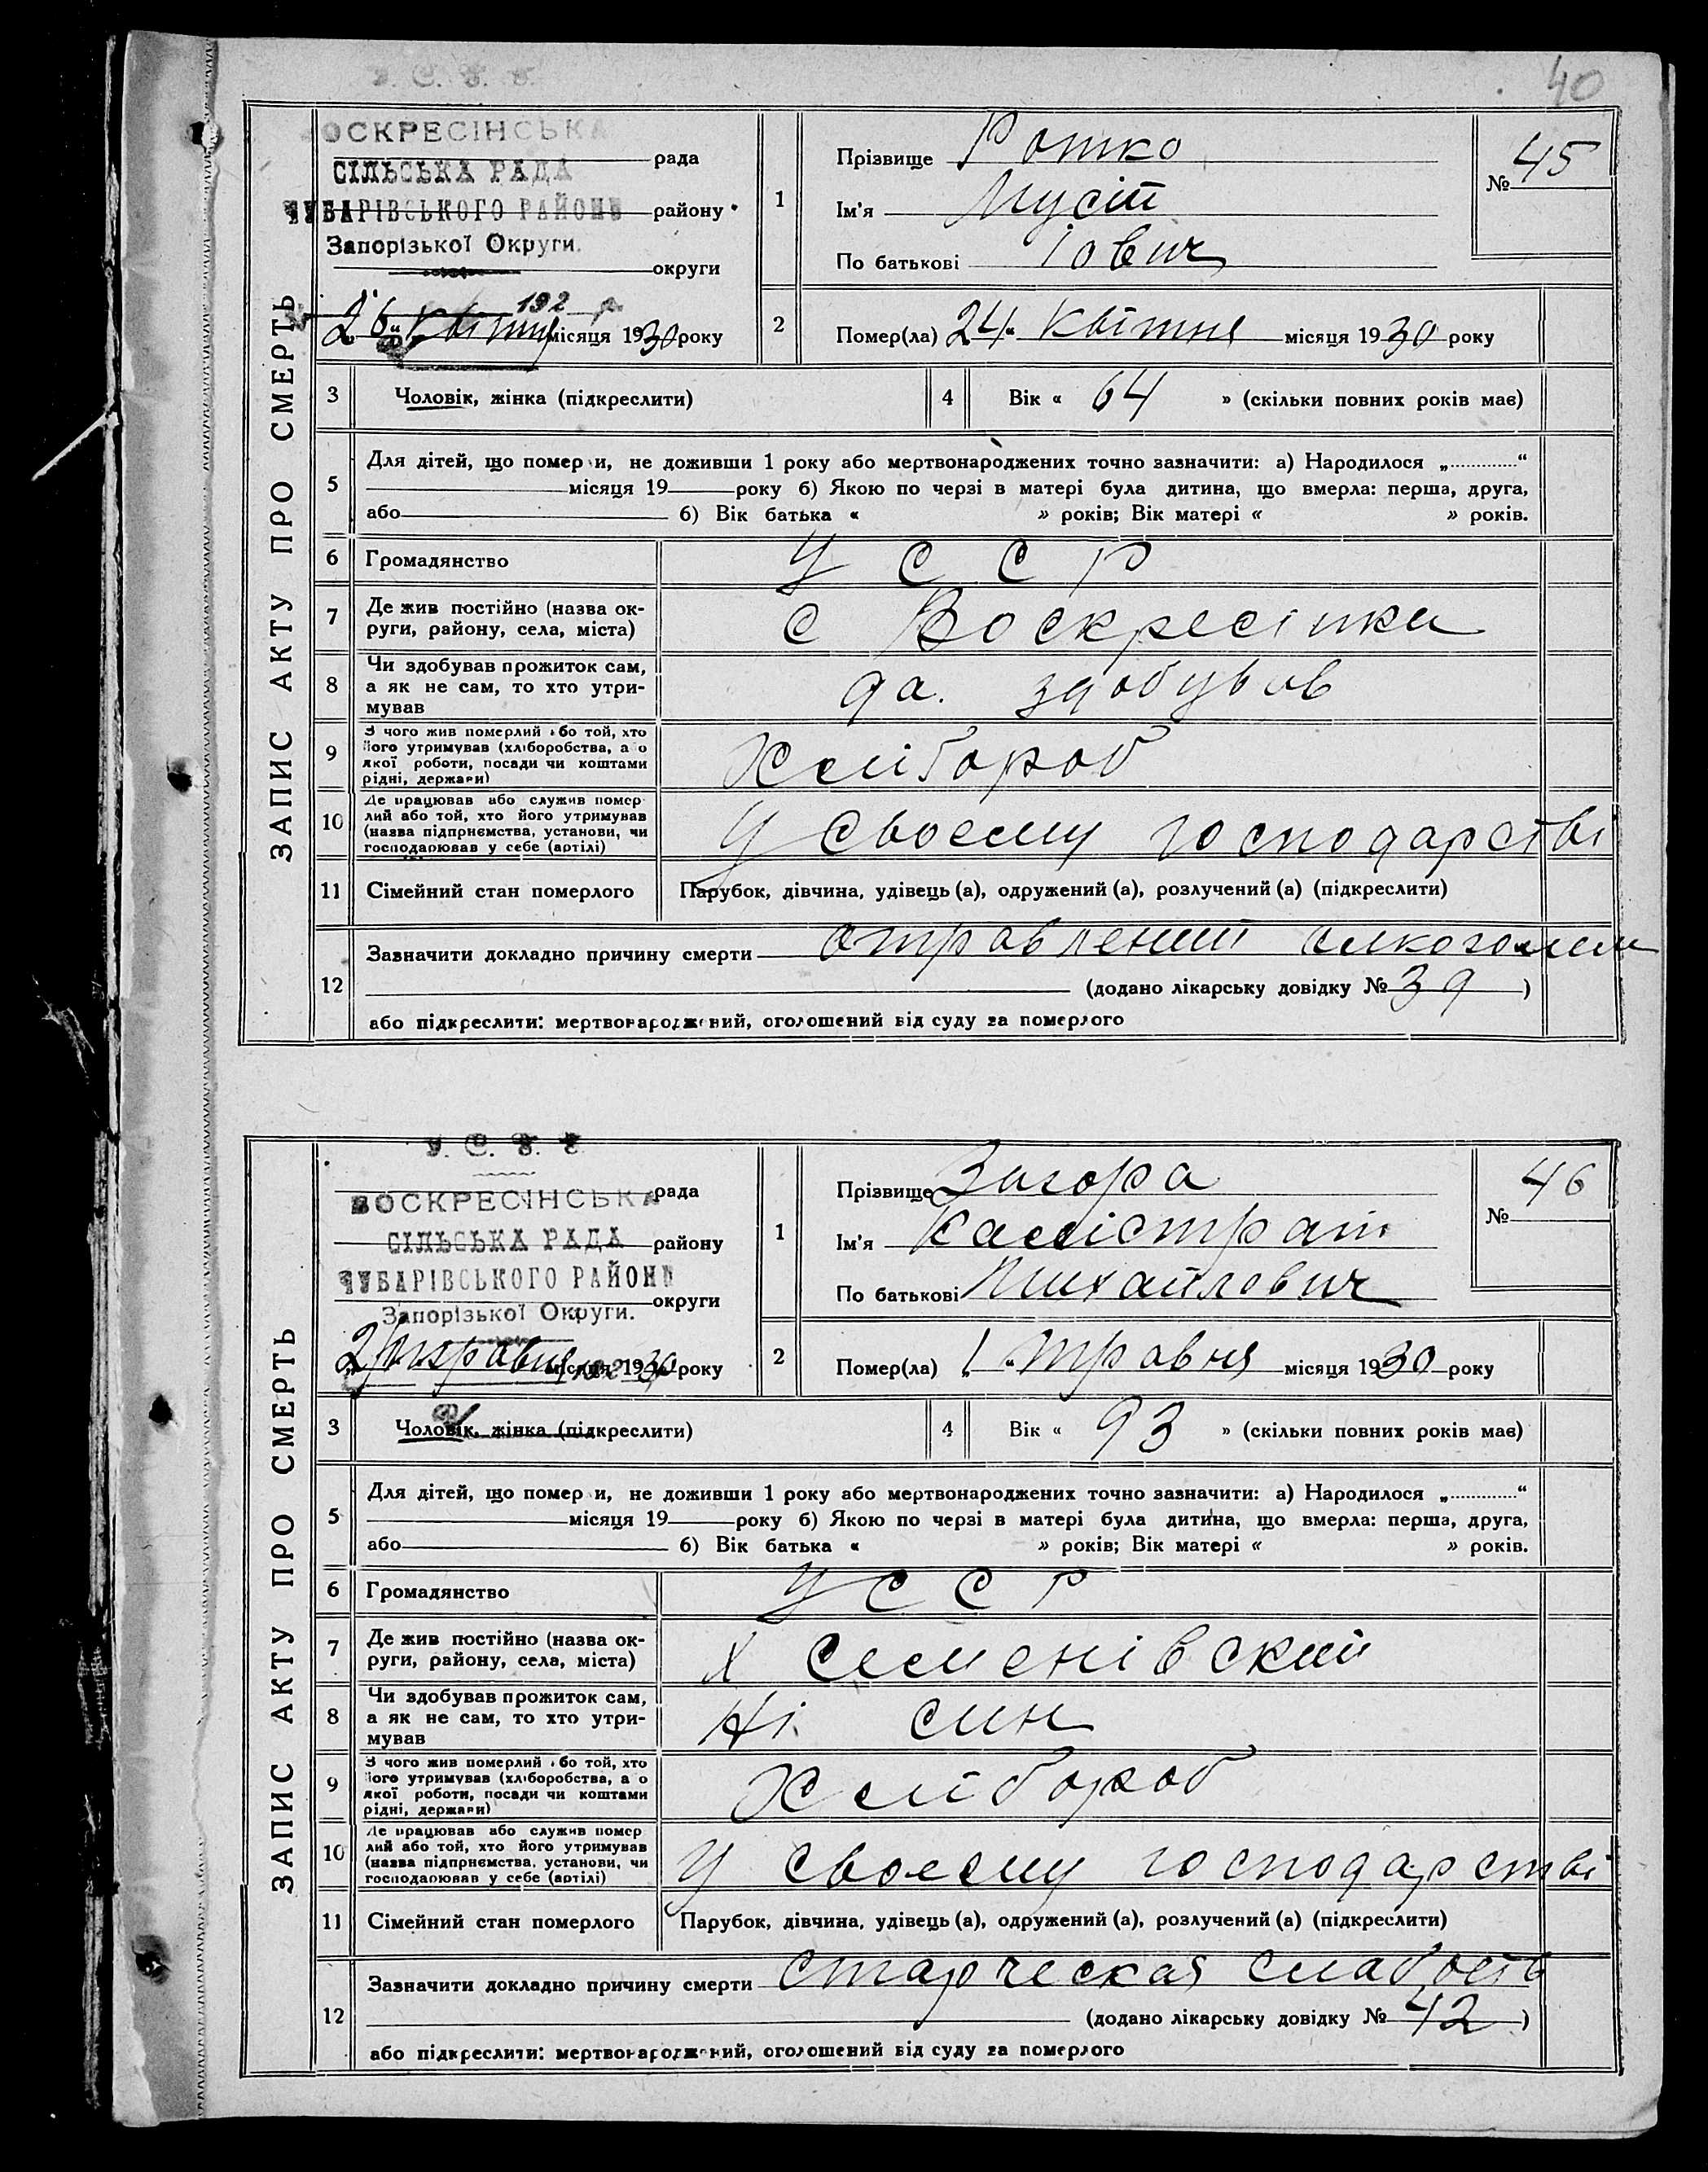 40
У. С. Р. Р.
ВОСКРЕСІНСЬКА
рада
СІЛЬСЬКА РАДА
ЧУБАРІВСЬКОГО РАЙОНУ
району
Запорізької Округи.
округи
192 р.
26 квітня місяця 1930 року
ЗАПИС АКТУ ПРО СМЕРТЬ
1
Прізвище Ротко
Ім'я Мусій
По батькові Іович
№ 45
2
Помер(ла) 24 квітня місяця 1930 року
3
Чоловік, жінка (підкреслити)
4
Вік « 64 » (скільки повних років має)
5
Для дітей, що померли, не доживши 1 року або мертвонароджених точно зазначити: а) Народилося „.............“
місяця 19 року б) Якою по черзі в матері була дитина, що вмерла: перша, друга,
або б) Вік батька « » років; Вік матері « » років.
6
Громадянство
УССР
7
Де жив постійно (назва ок-
руги, району, села, міста)
с Воскресінка
8
Чи здобував прожиток сам,
а як не сам, то хто утри-
мував
да. здобував
9
З чого жив померлий або той, хто
його утримував (хліборобства, або
якої роботи, посади чи коштами
рідні, держави)
Хлібороб
10
Де працював або служив помер
лий або той, хто його утримував
(назва підприємства, установи, чи
господарював у себе (артілі)
У своему господарстві
11
Сімейний стан померлого
Парубок, дівчина, удівець (а), одружений (а), розлучений (а) (підкреслити)
12
Зазначити докладно причину смерти отравлений алкоголем
(додано лікарську довідку № 39 )
або підкреслити: мертвонароджений, оголошений від суду за померлого
У. С. Р. Р.
ВОСКРЕСІНСЬКА
рада
СІЛЬСЬКА РАДА
району
ЧУБАРІВСЬКОГО РАЙОНУ
округи
Запорізької Округи.
2 травня місяця 1930 року
ЗАПИС АКТУ ПРО СМЕРТЬ
1
Прізвище Загора
Ім'я Калістрат
По батькові Михайлович
№ 46
2
Помер(ла) „ 1 “ травня місяця 1930 року
3
Чоловік, жінка (підкреслити)
4
Вік « 93 » (скільки повних років має)
5
Для дітей, що померли, не доживши 1 року або мертвонароджених точно зазначити: а) Народилося „.............“
місяця 19 року б) Якою по черзі в матері була дитина, що вмерла: перша, друга,
або б) Вік батька « » років; Вік матері « » років.
6
Громадянство
УССР
7
Де жив постійно (назва ок-
руги, району, села, міста)
х Семенівский
8
Чи здобував прожиток сам,
а як не сам, то хто утри-
мував
Ні. син
9
З чого жив померлий або той, хто
його утримував (хліборобства, або
якої роботи, посади чи коштами
рідні, держави)
Хлібороб
10
Де працював або служив помер
лий або той, хто його утримував
(назва підприємства, установи, чи
господарював у себе (артілі)
У своєму господарстві
11
Сімейний стан померлого
Парубок, дівчина, удівець (а), одружений (а), розлучений (а) (підкреслити)
12
Зазначити докладно причину смерти старческая слабость
(додано лікарську довідку № 42 )
або підкреслити: мертвонароджений, оголошений від суду за померлого